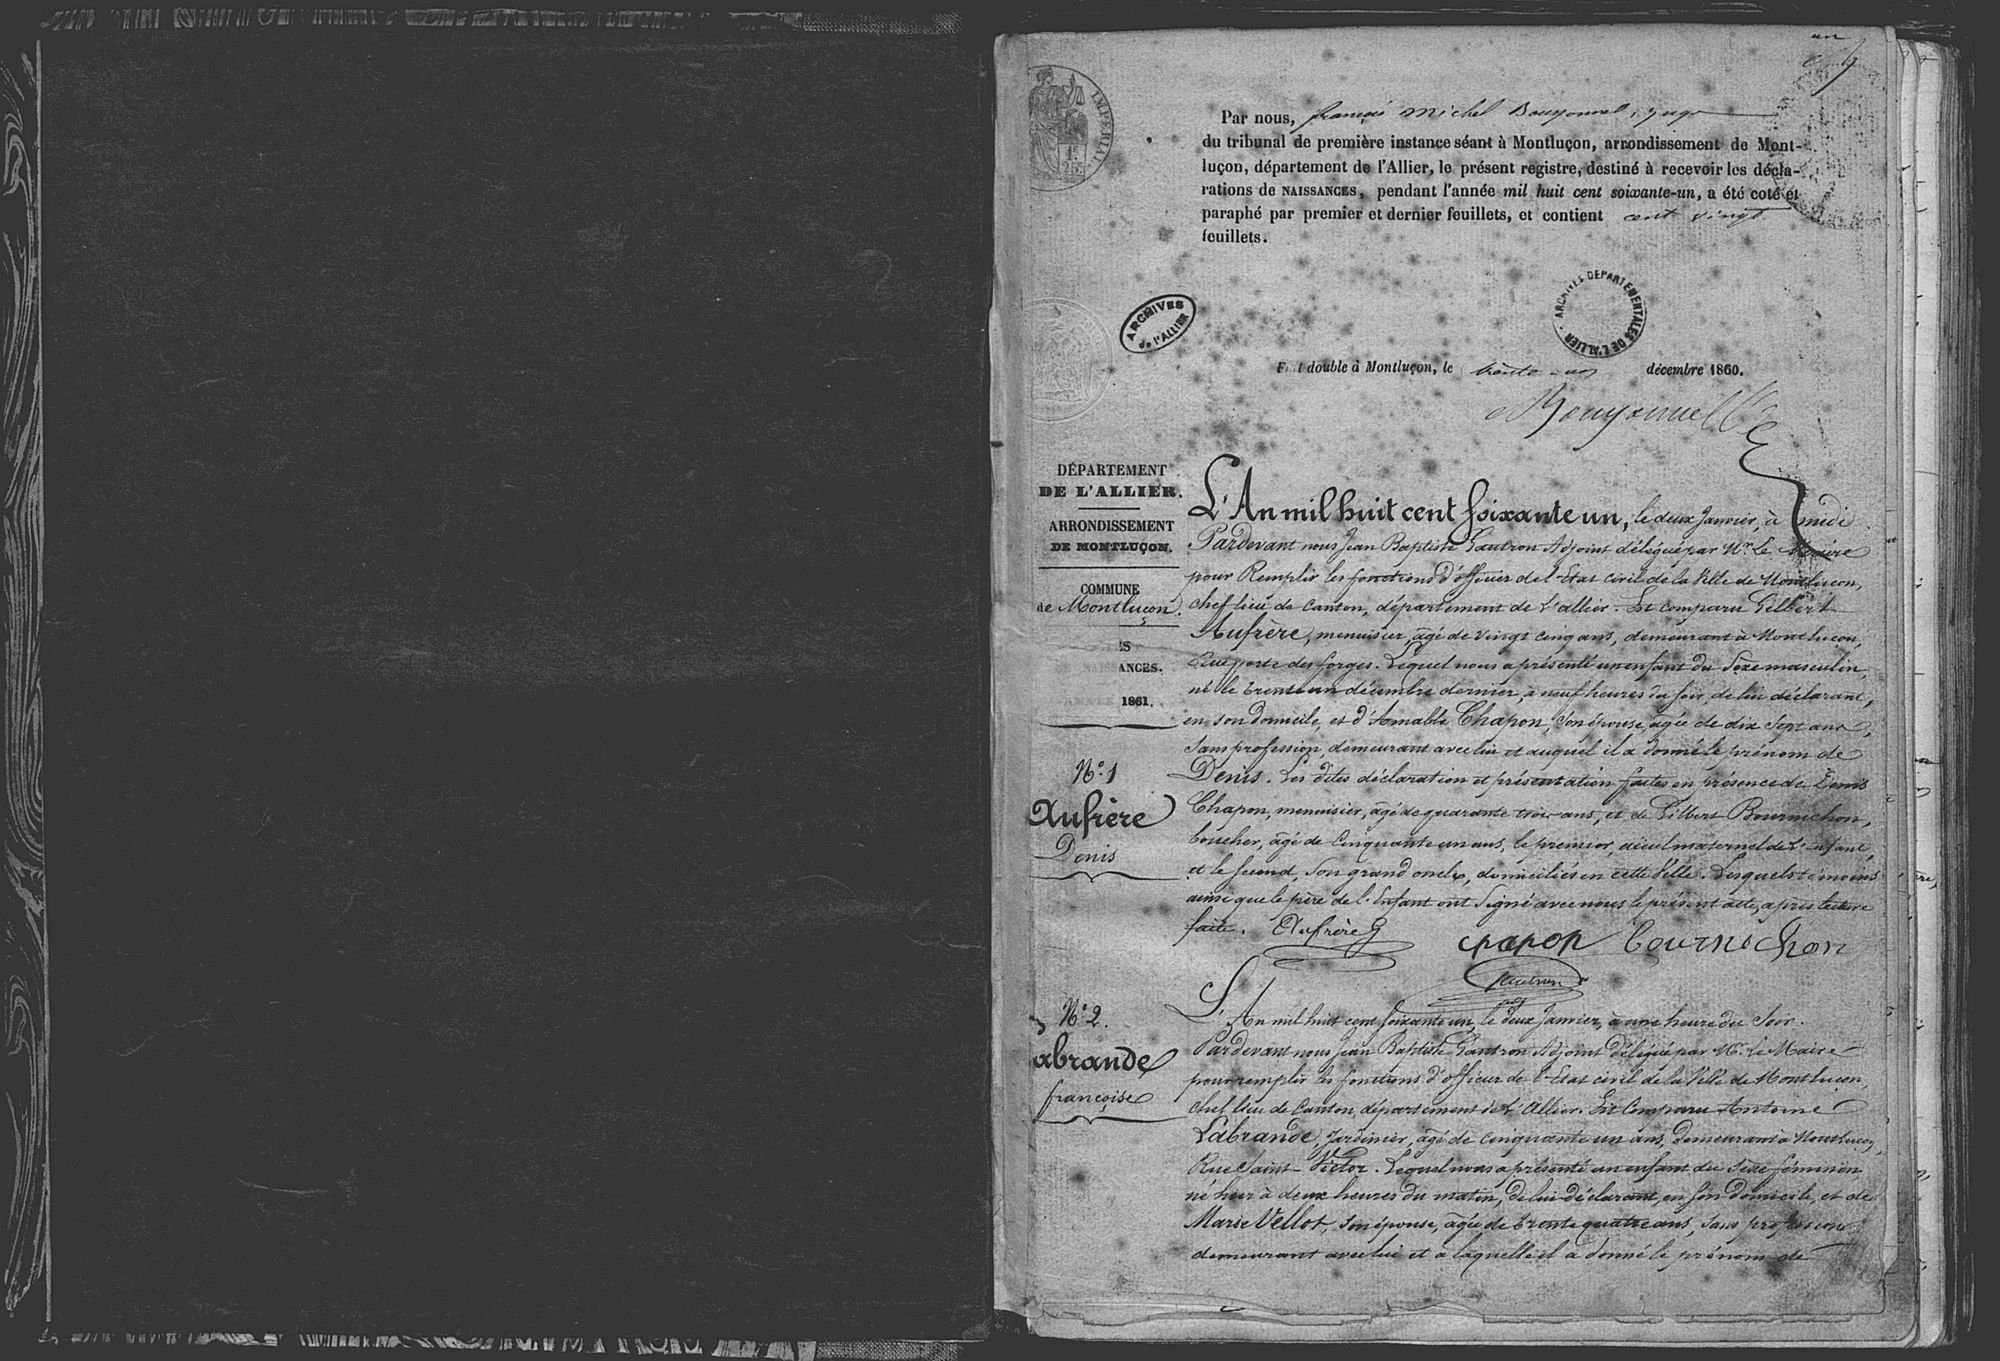 un
IMPERIAL
1F.
25.
Par nous, françois Michel Bouyonnel, juge
du tribunal de première instance séant à Montluçon, arrondissement de Mont-
luçon, département de l'Allier, le présent registre, destiné à recevoir les décla-
rations de NAISSANCES, pendant l'année mil huit cent soixante-un, a été coté et
paraphé par premier et dernier feuillets, et contient cent vingt
feuillets.
ARCHIVES DÉPARTEMENTALES DE L'ALLIER
ARCHIVES de l'ALLIER
F t double à Montluçon, le trente-un décembre 1860.
Bouyonnel
DÉPARTEMENT
DE L'ALLIER.
ARRONDISSEMENT
DE MONTLUÇON.
COMMUNE
de Montluçon.
ES
DE NAISSANCES.
1861.
L'An mil huit cent soixante un, le deux Janvier, à midi
Pardevant nous Jean Baptiste Gautron Adjoint délégué par Mr. Le Maire
pour Remplir les fonctions d'officier de l'Etat civil de la Ville de Montluçon,
chef lieu de Canton, département de l'allier. Est comparu Gilbert
Aufrère, menuisier, âgé de vingt cinq ans, demeurant à Montluçon,
Rue porte des forges. Lequel nous a présenté un enfant du Sexe masculin,
né le trente un décembre dernier, à neuf heures du soir, de lui déclarant,
en son domicile, et d'Amable Chapon, son épouse, agée de dix sept ans,
Sans profession, demeurant avec lui et auquel il a donné le prénom de
Denis. Les dites déclaration et présentation faites en présence de Denis
Chapon, menuisier, âgé de quarante trois ans, et de Gilbert Bournichon,
boucher, âgé de Cinquante un ans, le premier, aïeul maternel de l'Enfant,
et le second, Son grand oncle, domiciliés en cette Ville. Lesquels témoins
ainsi que le père de l'Enfant ont Signé avec nous le présent acte, après lecture
faite. Aufrère G chapon bournichon
Gautron
N.° 1
Aufrère
Denis
N.° 2.
Labrande
françoise
L'An mil huit cent soixante un, le deux Janvier, à une heure du Soir.
Pardevant nous Jean Baptiste Gautron Adjoint délégué par Mr. Le Maire
pour remplir les fonctions d'officier de l'Etat civil de la Ville de Montluçon,
chef lieu de Canton, département de l'Allier. Est Comparu Antoine
Labrande, Jardinier, âgé de cinquante un ans, demeurant à Montluçon,
Rue Saint-Victor. Lequel nous a présenté un enfant du Sexe féminin
né hier à deux heures du matin, de lui déclarant, en son domicile, et de
Marie Vellot, son épouse, âgée de trente quatre ans, sans profession
demeurant avec lui et à laquelle il a donné le prénom de